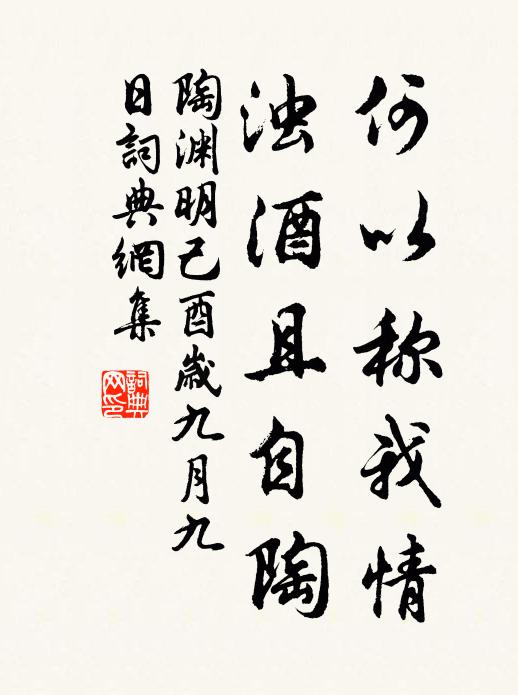 何以称我情
浊酒且自陶
陶渊明己酉岁九月九
日詞典網集
詞典网印